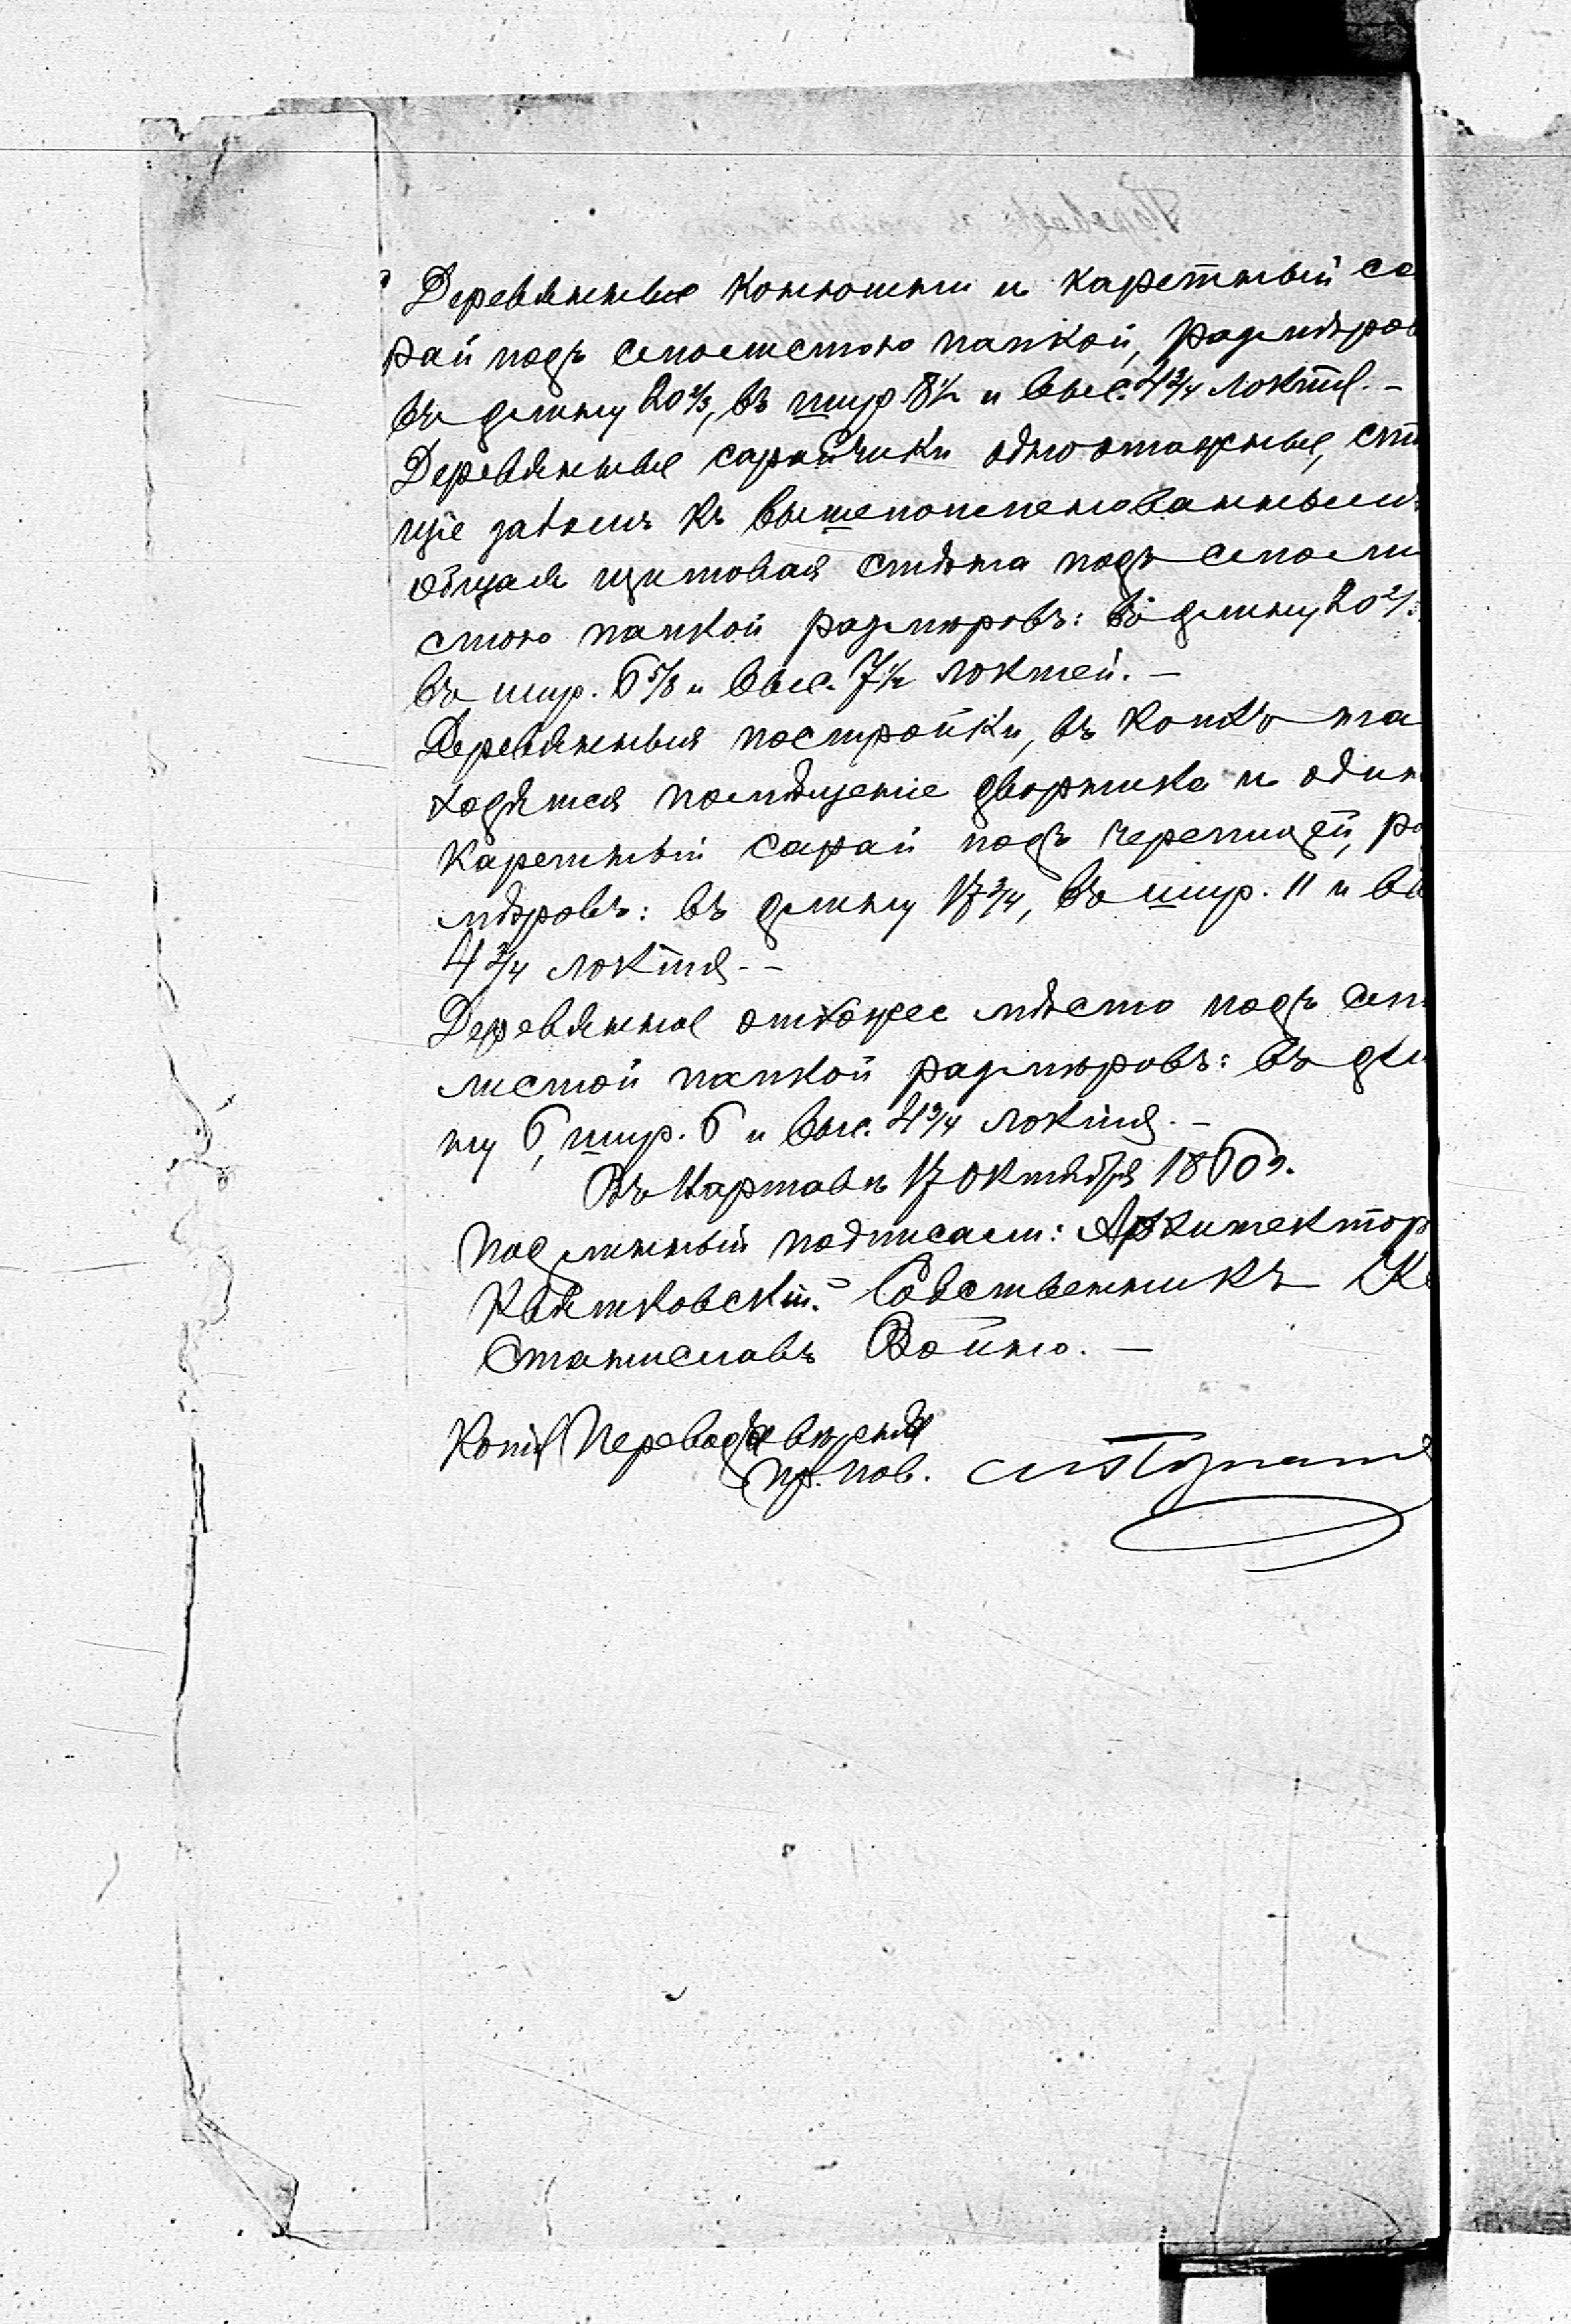 Деревянныя конюшни и каретный са
рай подъ смолистою папкой, размѣров
въ длину 20⅔, въ шир 8½ и выс. 4¾ локтя. –
Деревянные сарайчики одноэтажные, сто
щіе задомъ къ вышепоименованнымъ
общая щитовая стѣна подъ смоли
стою папкой размѣровъ: въ длину 20⅔
въ шир. 6⅚ и выс. 7½ локтей. –
Деревянныя постройки, въ коихъ на
ходятся помѣщеніе дворника и один
каретный сарай подъ черепицей, ра
мѣровъ: въ длину 17¾, въ шир. 11 и вы
4¾ локтя. –
Деревянное отхожее мѣсто подъ смо
листой папкой размѣровъ: въ дли
ну 6, шир. 6 и выс. 4¾ локтя. –
Въ Варшавѣ 17 октября 1860 г.
Подлинный подписали: Архитектор
Квятковскій. Собственникъ
Станиславъ Войно. –
Копія перевода вѣрна
пр. пов.